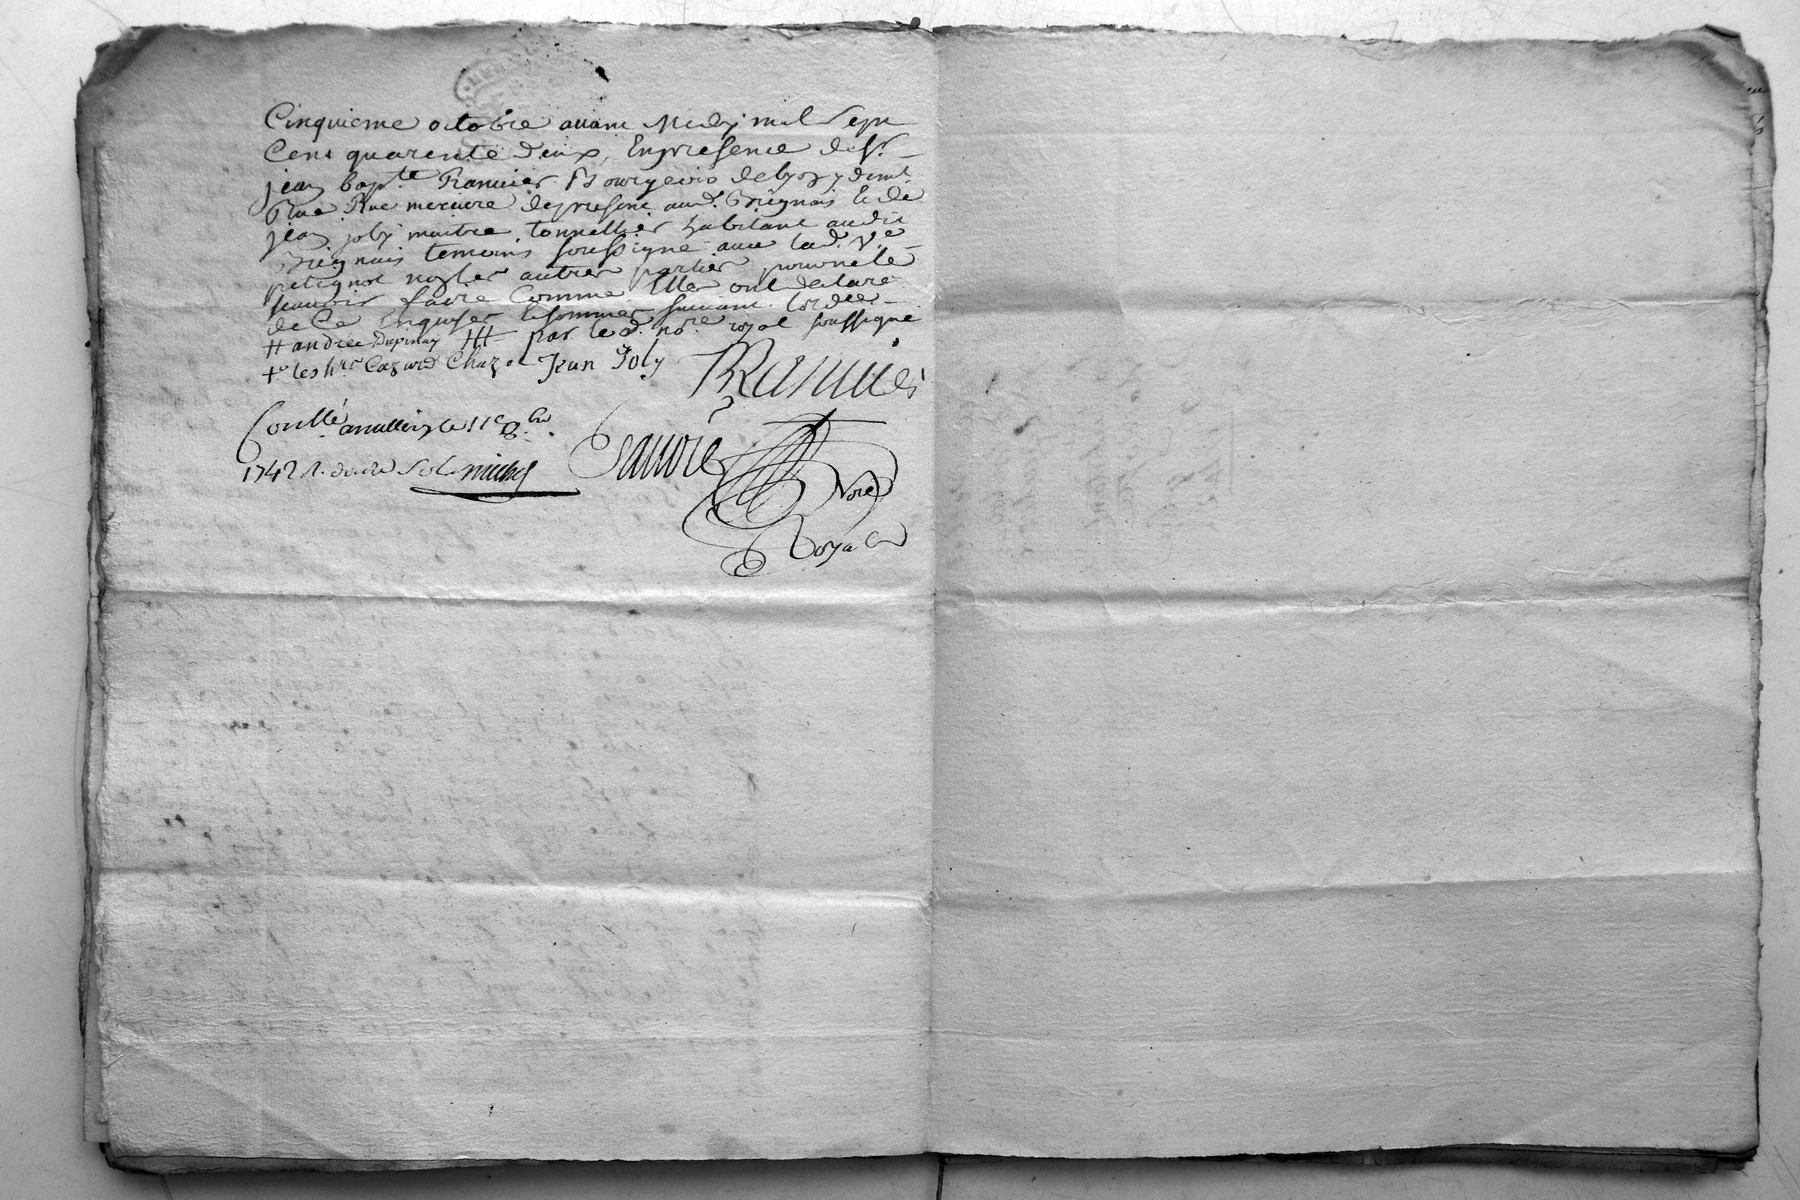 Cinquieme octobre avant Midy mil sept
Cent quarente deux, En presence de Sr.
jean bapte. Ramier Bourgeois de lyon y demt.
Rue Rue merciere de present aud. Brignais Et de
jean joly maitre tonnellier habitant audit
Brignais temoins soussigné avec lad. Ve.
petignot non les autres parties pour ne le
scavoir faire Comme Elles ont declaré
de Ce Enquises Et sommées suivant lordce.
# andrée Dupinay ### par led. nore. royal soussigné
+ les hrs Cazard Chazot Jean Joly
Ramier
Conllé a millery le 11e 8bre
1742 R. douze sols michel
Sauvre
Nore
Royal